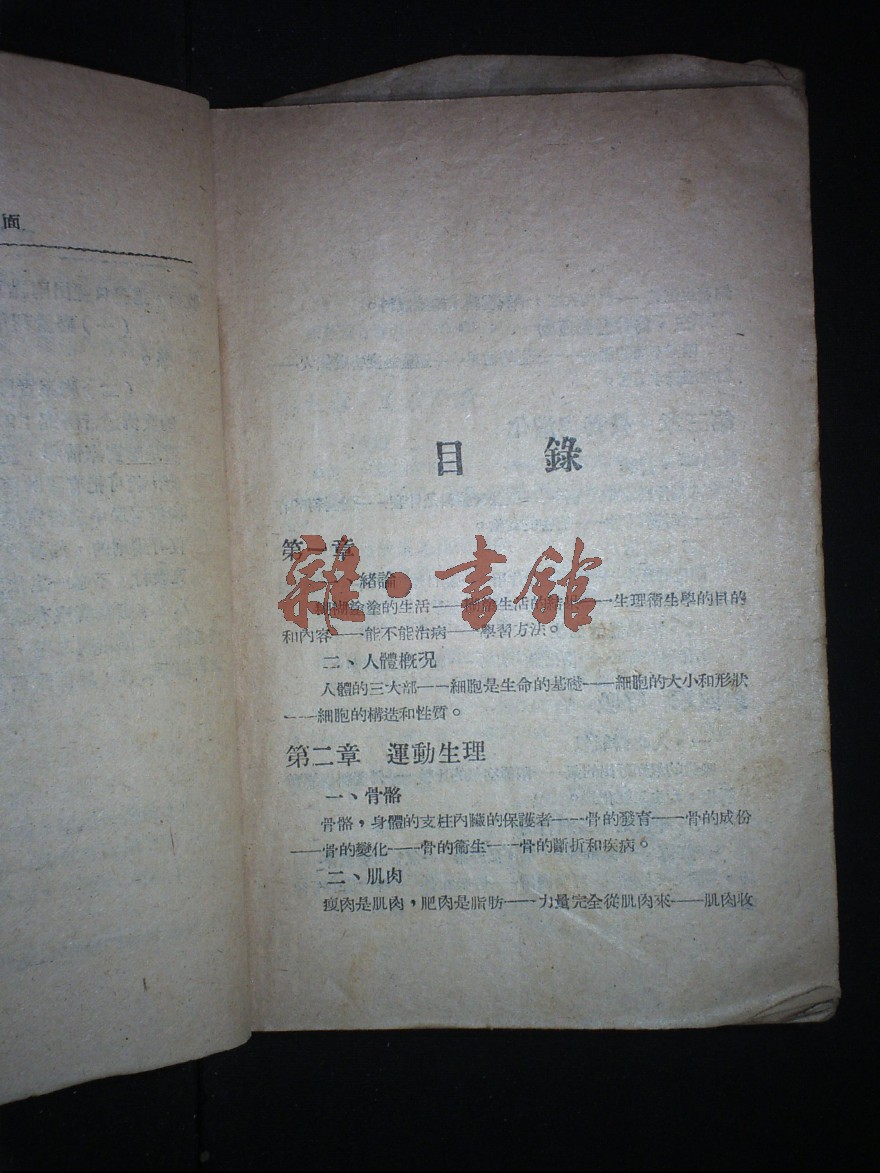 面
目錄
第一章
緒論
塗塗的生活——生理衞生學的目的
和內容——能不能治病——學習方法。
二、人體概况
人體的三大部——細胞是生命的基礎——細胞的大小和形狀
——細胞的構造和性質。
第二章 運動生理
一、骨骼
骨骼，身體的支柱內臟的保護者——骨的發育——骨的成份
——骨的變化——骨的衞生——骨的斷折和疾病。
二、肌肉
瘦肉是肌肉，肥肉是脂肪——力量完全從肌肉來——肌肉收
雜·書館